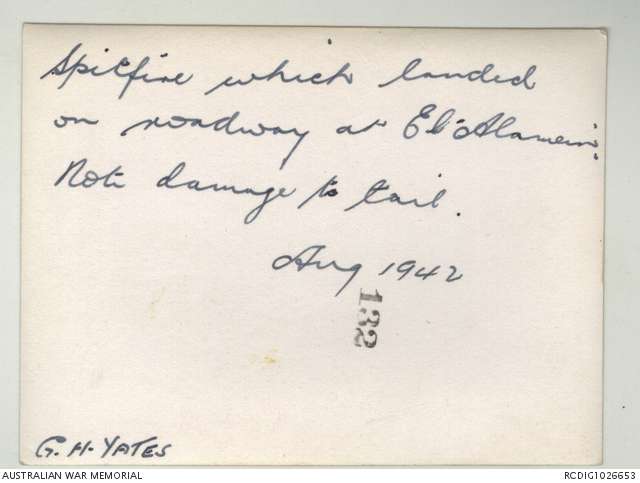 Spitfire which landed
on roadway at El Alamein.
Note damage to tail.
Aug 1942
132
G. H. YATES
AUSTRALIAN WAR MEMORIAL
RCDIG1026653